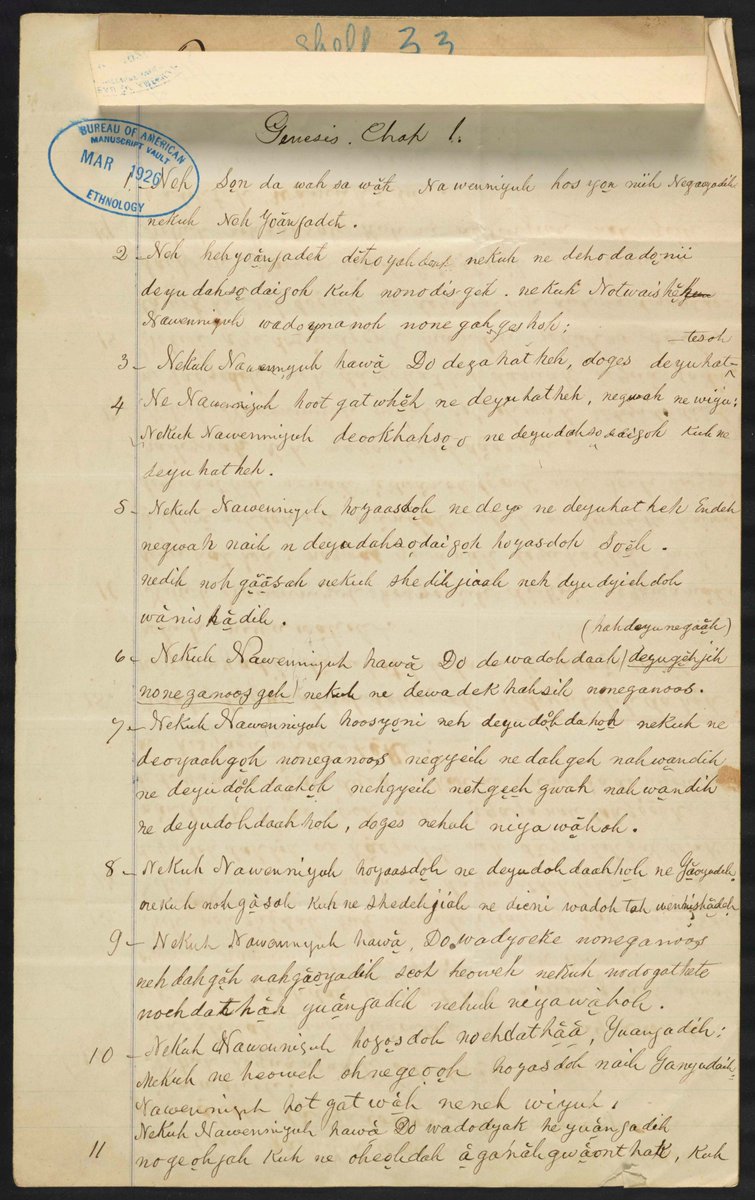 shell 33
Genesis. Chap 1.
BUREAU OF AMERICAN
MANUSCRIPT VAULT
MAR 1926
ETHNOLOGY
1. Neh Sǫn da wah sa wäh Nawenniyuh hos yǫn niih Negaoyadih
nekuh Neh Yoänjadeh.
2 - Neh heh yoänjadeh nekuh ne dehodadǫnii
deyudahsǫdaigoh Kuh nonodisgeh. nekuh Notwaishëh
Nawenniyuh wadoynanoh nonegahgeshoh;
3 - Nekuh Nawenniyuh hawä Do deyahatheh, doges deyuhat-tesoh
4 Ne Nawenniyuh hoot gatwhëh ne deyuhatheh, negwah ne wiyu;
Nekuh Nawenniyuh deookhahsǫ ne deyudahsǫdaigoh Kuh ne
deyuhatheh.
5 - Nekuh Nawenniyuh hoyaasdoh ne deyo ne deyuhatheh Endeh
negwah naih n deyudahsǫdaigoh hoyasdoh Soëh.
nedih noh gääsah nekuh shedihjiaah neh dyudyiehdoh
wänishädih.
(hahdeyunegaäh)
6 - Nekuh Nawenniyuh hawä Do dewadohdaah (deyugëhjih
noneganoosgeh) nekuh ne dewadekhahsih noneganoos.
7 - Nekuh Nawenniyah hoosyǫni neh deyudöhdahoh nekuh ne
deoyaahgǫh noneganoos negyeih nedahgeh nahwandih
ne deyudöhdaahoh nehgyeih netgeeh gwah nahwandih
ne deyudohdaahhoh, doges nehuh niyawähoh.
8 - Nekuh Nawenniyuh hoyaasdǫh ne deyudohdaahhoh ne Gäoyadih
nekuh noh gäsah Kuh ne shedehjiah ne dieni wadoh tah wenhishädeh
9 - Nekuh Nawenniyuh hawä, Do wadyoeke noneganoos
neh dahgäh nahgäoyadih scoh heoweh nekuh nodogathete
noehdathäh yuänjadih nehuh niyawähoh.
10 - Nekuh Nawenniyuh hoyasdoh noehdathää, Yuanjadih;
Nekuh ne heoweh ohnegeooh hoyasdoh naih Ganyudaih
Nawenniyuh hotgatwäh neneh wiyuh.
11 Nekuh Nawenniyuh hawä Do wadodyak he yuänjadih
nogeohjah Kuh ne oheohdah äganähgwäonthak, Kuh